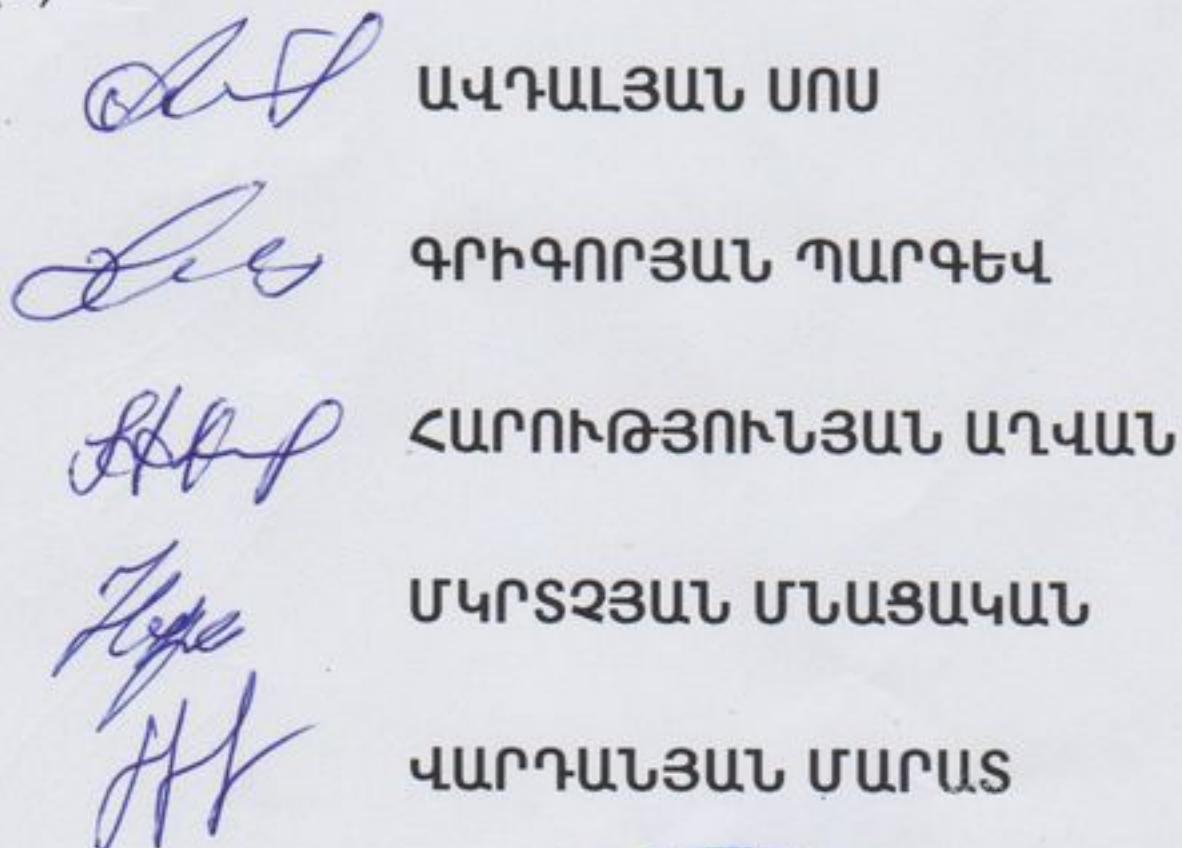 ԱՎԴԱԼՅԱՆ ՍՈՍ
ԳՐԻԳՈՐՅԱՆ ՊԱՐԳԵՎ
ՀԱՐՈՒԹՅՈՒՆՅԱՆ ԱՂՎԱՆ
ՄԿՐՏՉՅԱՆ ՄՆԱՑԱԿԱՆ
ՎԱՐԴԱՆՅԱՆ ՄԱՐԱՏ